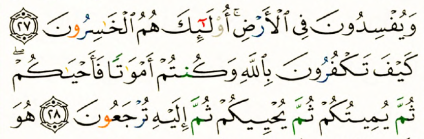 وَيُفْسِدُونَ فِي الْأَرْضِ ۚ أُولَٰئِكَ هُمُ الْخَاسِرُونَ ﴿٢٧﴾
كَيْفَ تَكْفُرُونَ بِاللَّهِ وَكُنتُمْ أَمْوَاتًا فَأَحْيَاكُمْ ۖ
ثُمَّ يُمِيتُكُمْ ثُمَّ يُحْيِيكُمْ ثُمَّ إِلَيْهِ تُرْجَعُونَ ﴿٢٨﴾ هُوَ